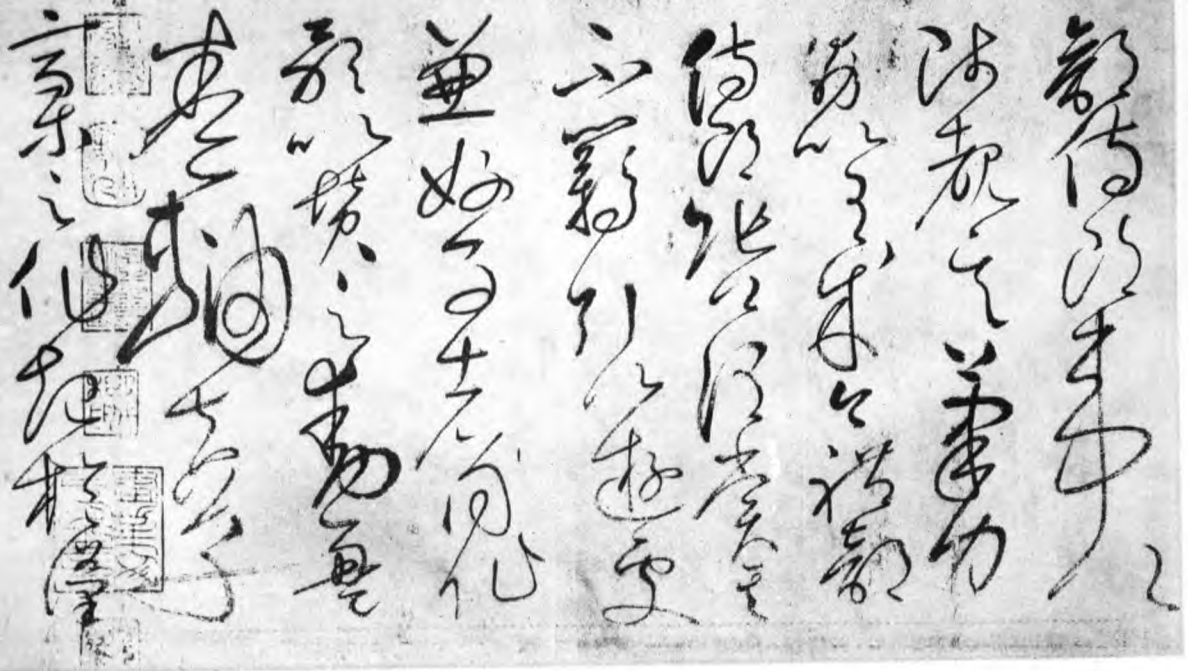 部侍郎韋公
陟覩其筆力
勗以有成今禮部
侍郎張公謂賞其
不羈引以遊處
兼好事者同作
歌以贊之動盈
卷軸夫草
稾之作起於漢